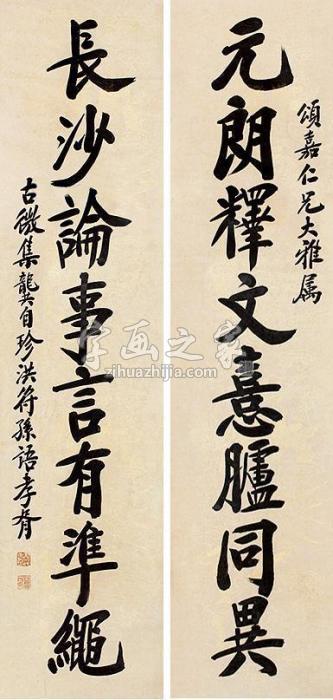 頌嘉仁兄大雅属
元朗釋文憙臚同異
長沙論事言有準繩
古微集龔自珍洪符孫語孝胥
字画之家
zihuazhijia.com